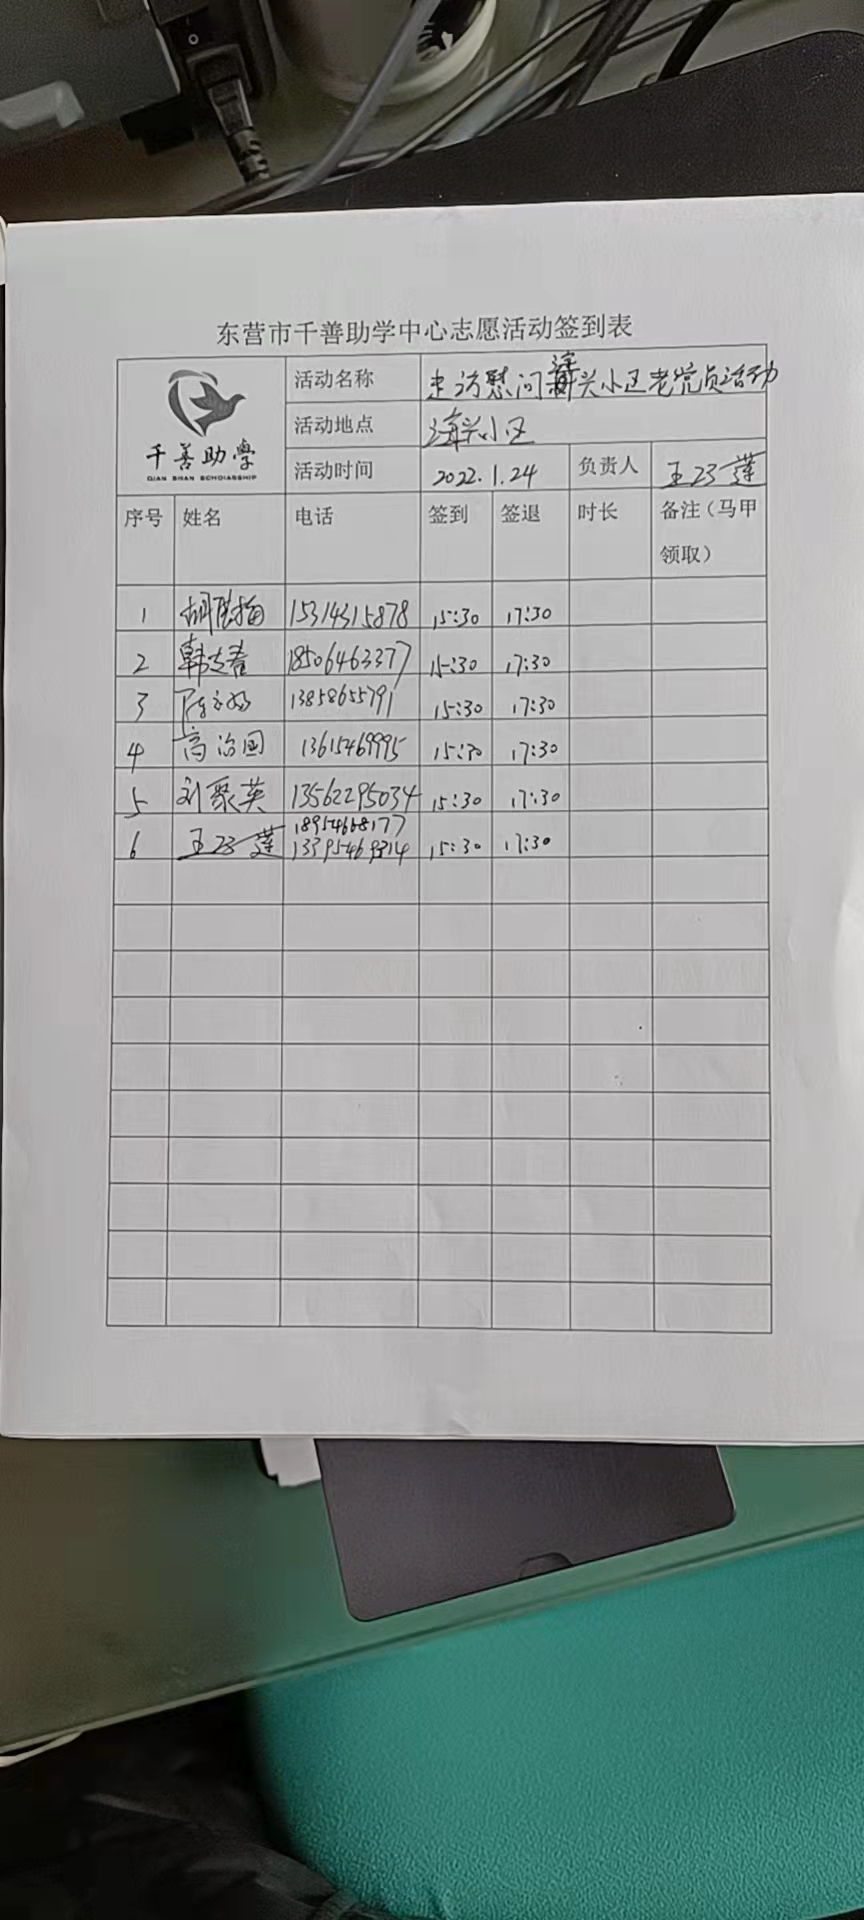 东营市千善助学中心志愿活动签到表
千善助學
QIAN SHAN SCHOLARSHIP
活动名称 走访慰问海兴小区老党员活动
活动地点 海兴小区
活动时间 2022.1.24 负责人 王 莲
序号 姓名 电话 签到 签退 时长 备注（马甲领取）
1 胡 梅 15314315878 15:30 17:30
2 韩志春 18506463377 15:30 17:30
3 陈 13858655791 15:30 17:30
4 高治国 13615469995 15:30 17:30
5 刘聚英 13562295034 15:30 17:30
6 王 莲 18954668177 15:30 17:30